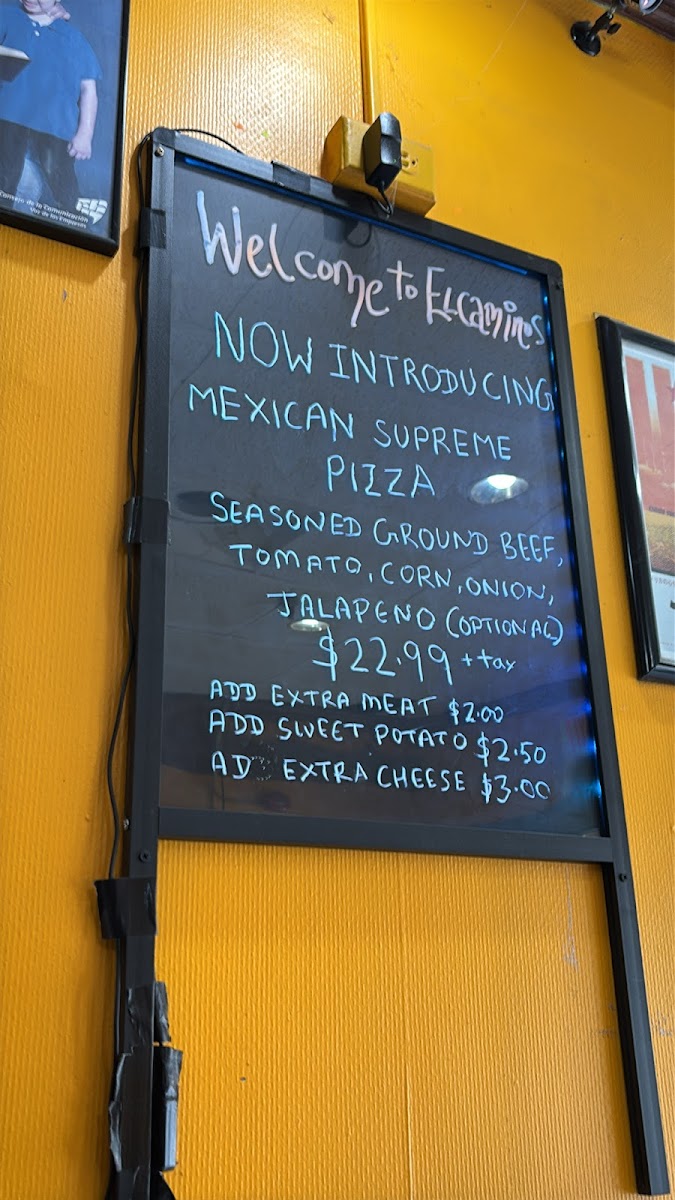 Consejo de la Comunicación
Voz de las Empresas
Welcome to Elcaminos
NOW INTRODUCING
MEXICAN SUPREME
PIZZA
SEASONED GROUND BEEF,
TOMATO, CORN, ONION,
JALAPENO (OPTIONAL)
$22.99 + tax
ADD EXTRA MEAT $2.00
ADD SWEET POTATO $2.50
AD EXTRA CHEESE $3.00